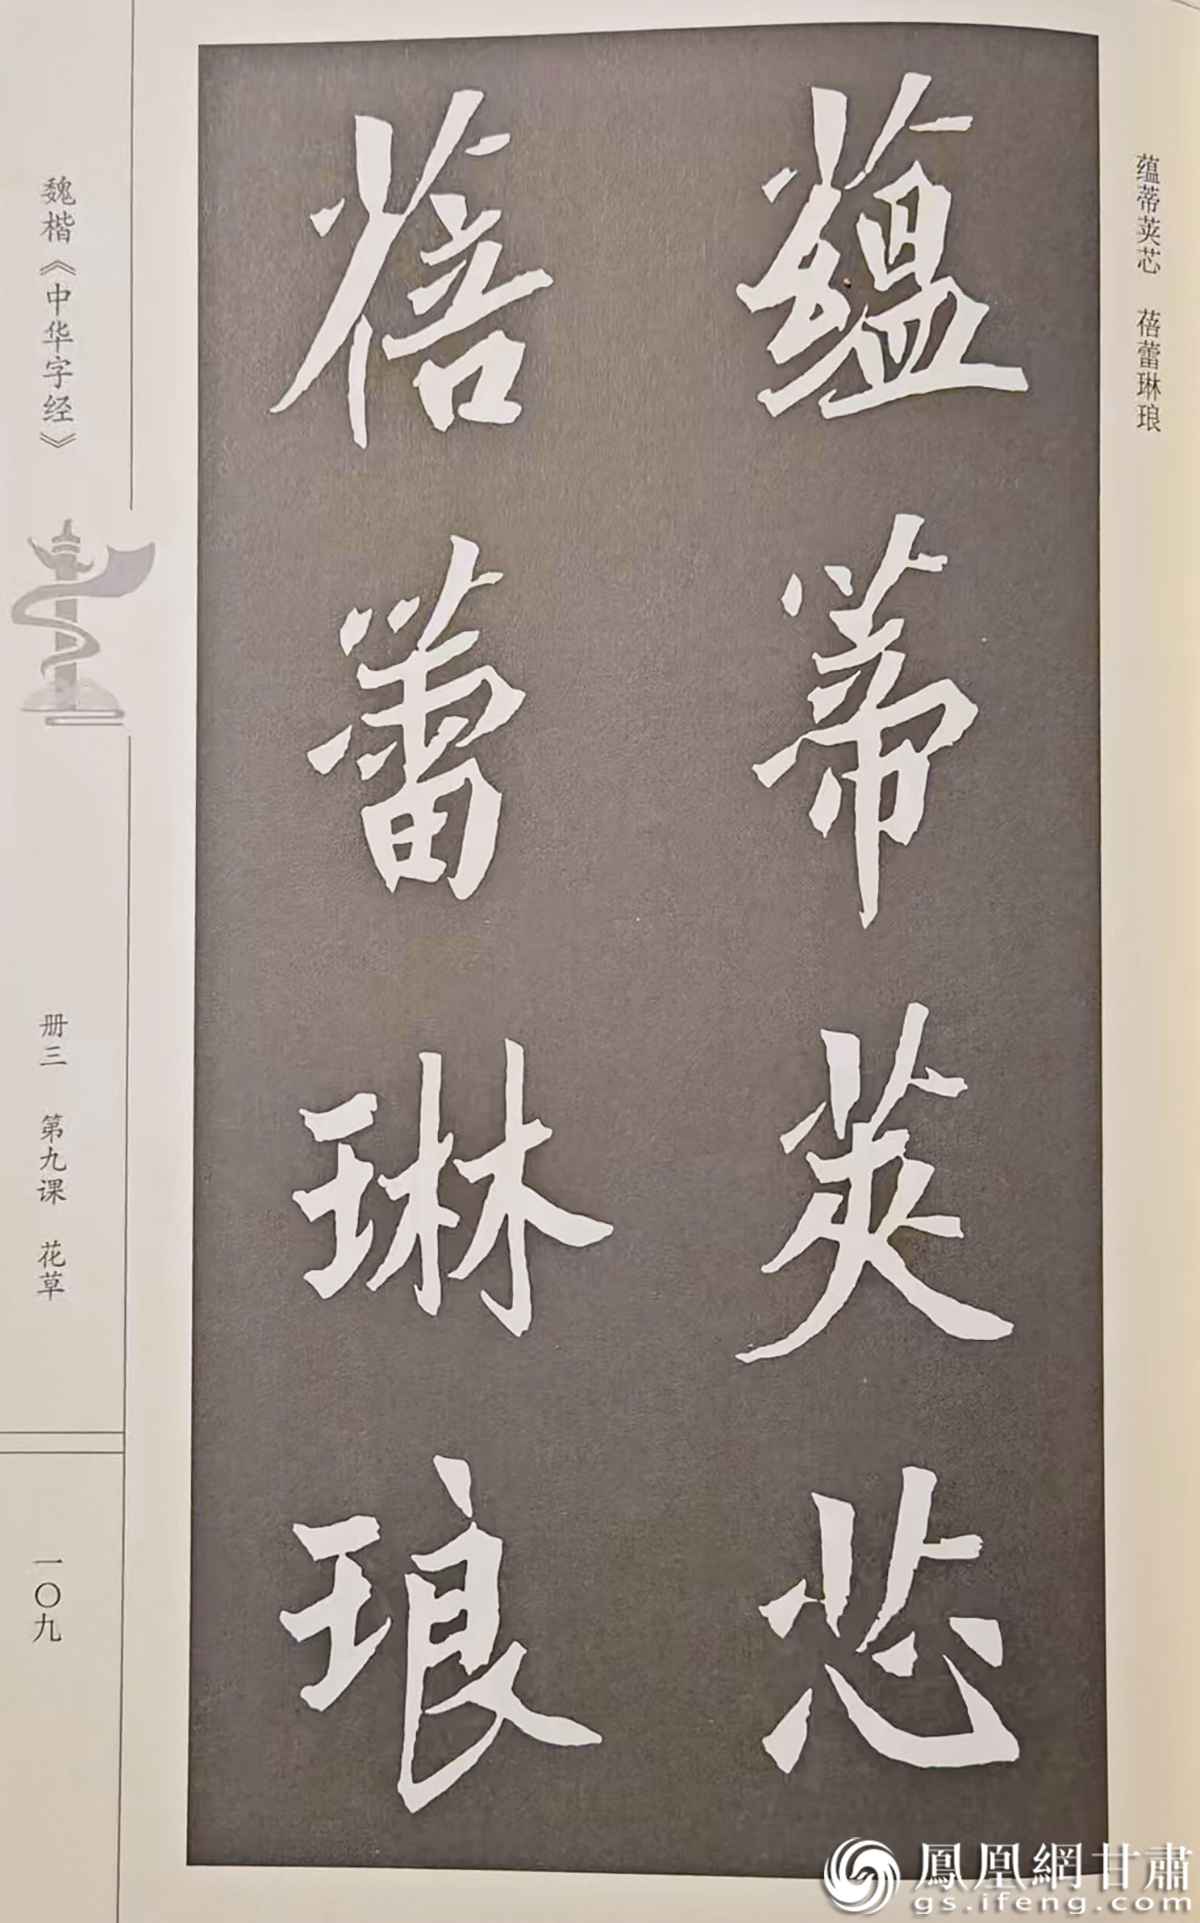 蕴蒂荚芯 蓓蕾琳琅
蕴蒂荚芯
蓓蕾琳琅
魏楷《中华字经》
册三 第九课 花草
一〇九
鳳凰網甘肅
gs.ifeng.com